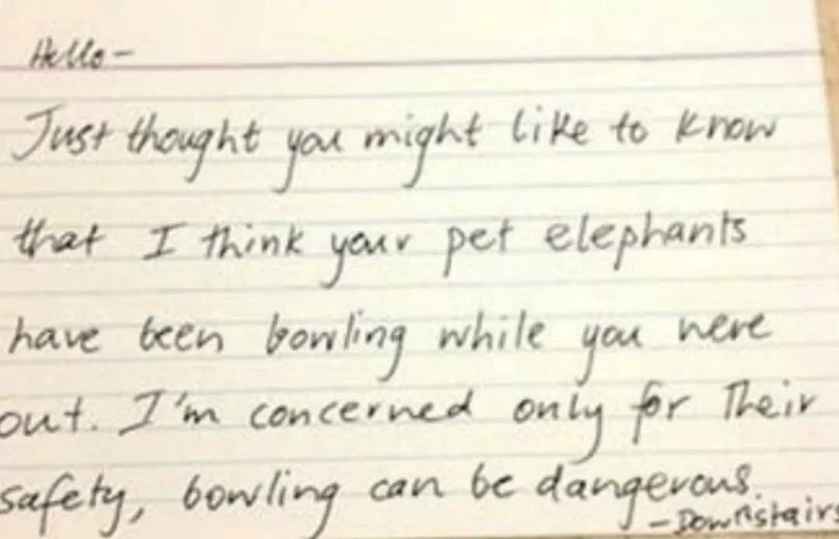 Hello-
Just thought you might like to know
that I think your pet elephants
have been bowling while you were
out. I'm concerned only for Their
safety, bowling can be dangerous.
-Downstairs